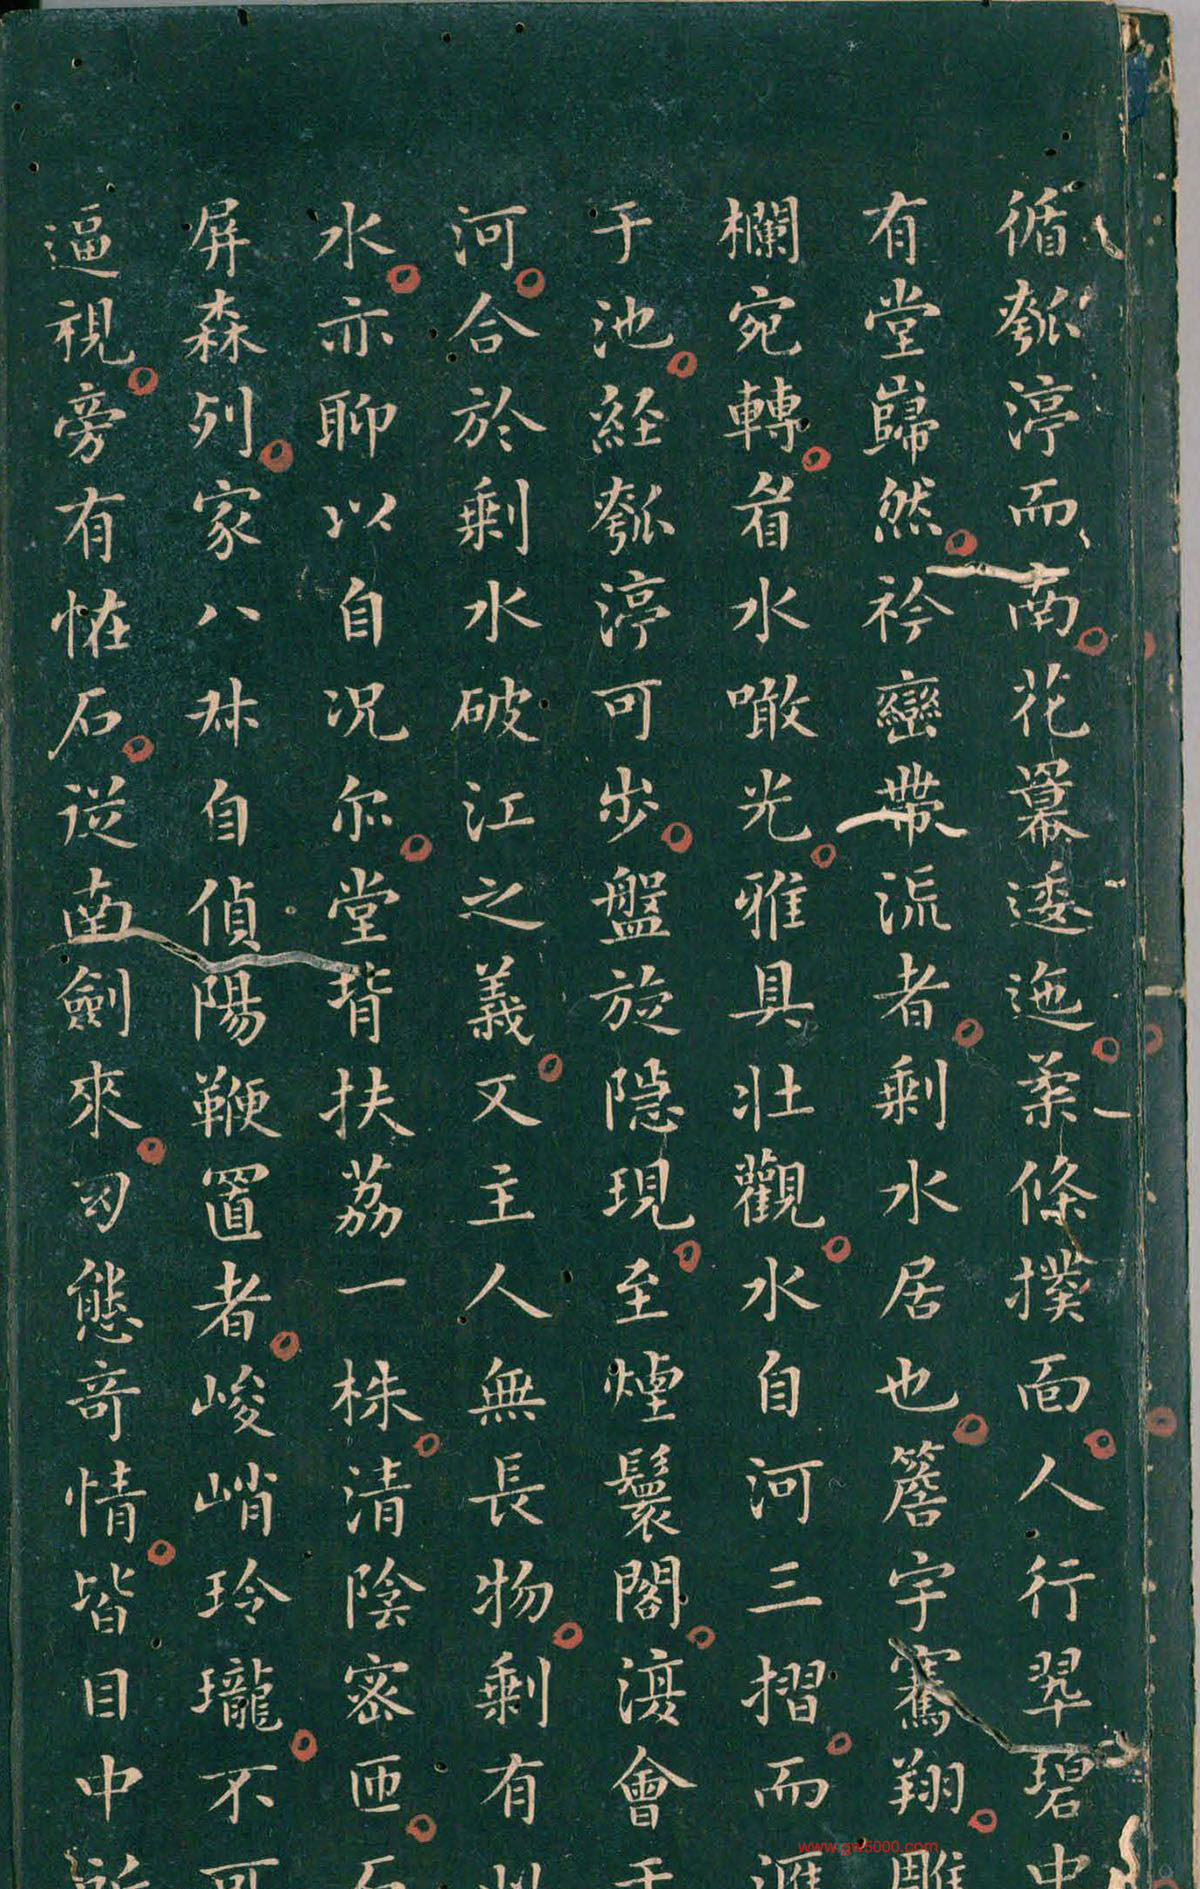 循瓠渟而南花羃逶迤柔條撲面人行翠碧中
有堂巋然衿巒帶流者剩水居也簷宇騫翔雕
欄宛轉看水噉光雅具壯觀水自河三摺而滙
于池経瓠渟可步盤旋隠現至煙鬟閣渡會于
河合於剩水破江之義又主人無長物剩有
水亦聊以自况尔堂背扶荔一株清陰密匝石
屏森列家八林自偵陽鞭置者峻峭玲瓏不可
逼視旁有恠石従南劍來幻態奇情皆目中所
www.gw5000.com